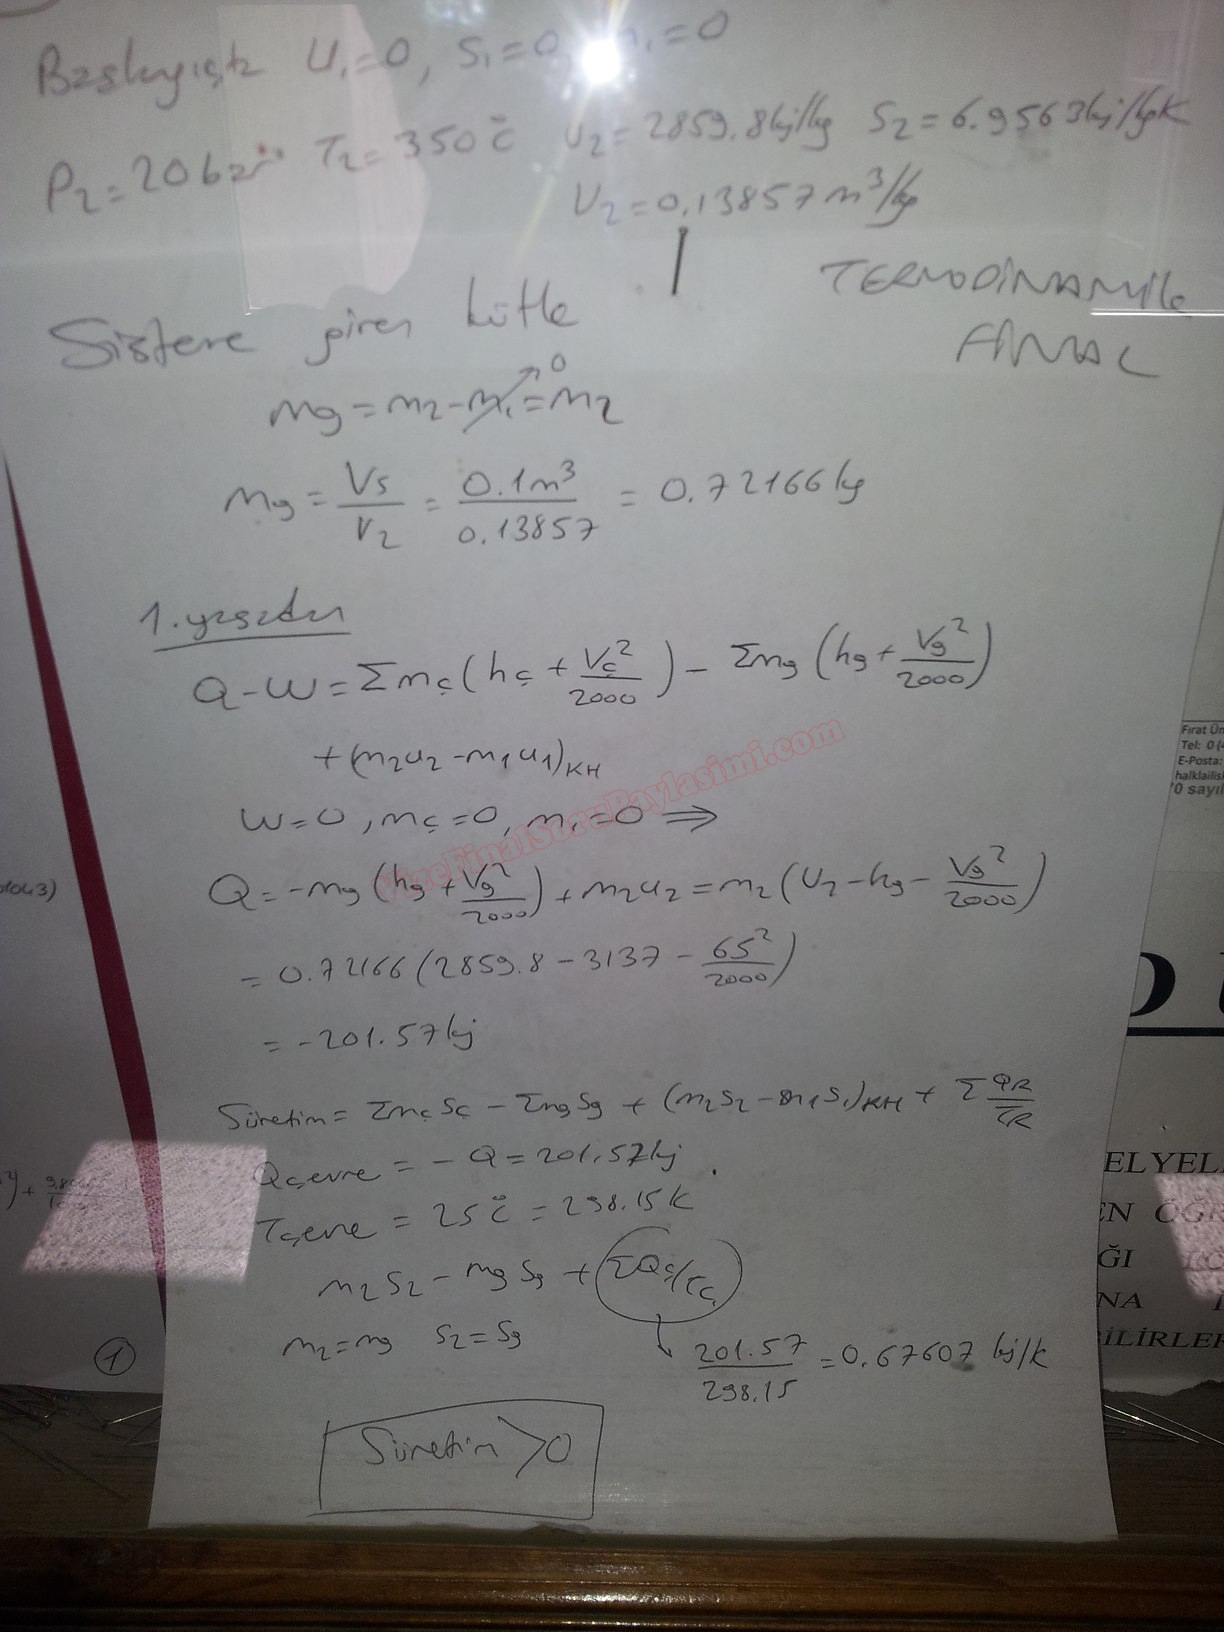 Başlangıçta U₁=0, S₁=0, m₁=0
P₂=20bar T₂=350°C U₂=2859.8kj/kg S₂=6.9563kj/kgK
V₂=0.13857m³/kg
TERMODİNAMİK
FİNAL
Sisteme giren kütle
mg=m₂-m₁=m₂
0
mg = Vs/V₂ = 0.1m³/0.13857 = 0.72166kg
1.yasadan
Q-W=Σmç(hç+Vç²/2000)-Σmg(hg+Vg²/2000)
+(m₂u₂-m₁u₁)KH
W=0, mç=0, m₁=0 ⇒
Q=-mg(hg+Vg²/2000)+m₂u₂=m₂(U₂-hg-Vg²/2000)
=0.72166(2859.8-3137-65²/2000)
=-201.57kj
Süretim=ΣmçSç-ΣmgSg+(m₂S₂-m₁S₁)KH+ΣQR/TR
Qçevre=-Q=201.57kj
Tçevre=25°C=298.15K
m₂S₂-mgSg+(ΣQç/Tç)
m₂=mg S₂=Sg
201.57/298.15=0.67607 kj/K
Süretim>0
VizeFinalSoruPaylasimi.com
Fırat Ün
Tel: 0(4
E-Posta:
halklailis
'0 sayıl
1043)
D
ELYEL
EN ÖĞR
ĞI
NA
BİLİRLER
1